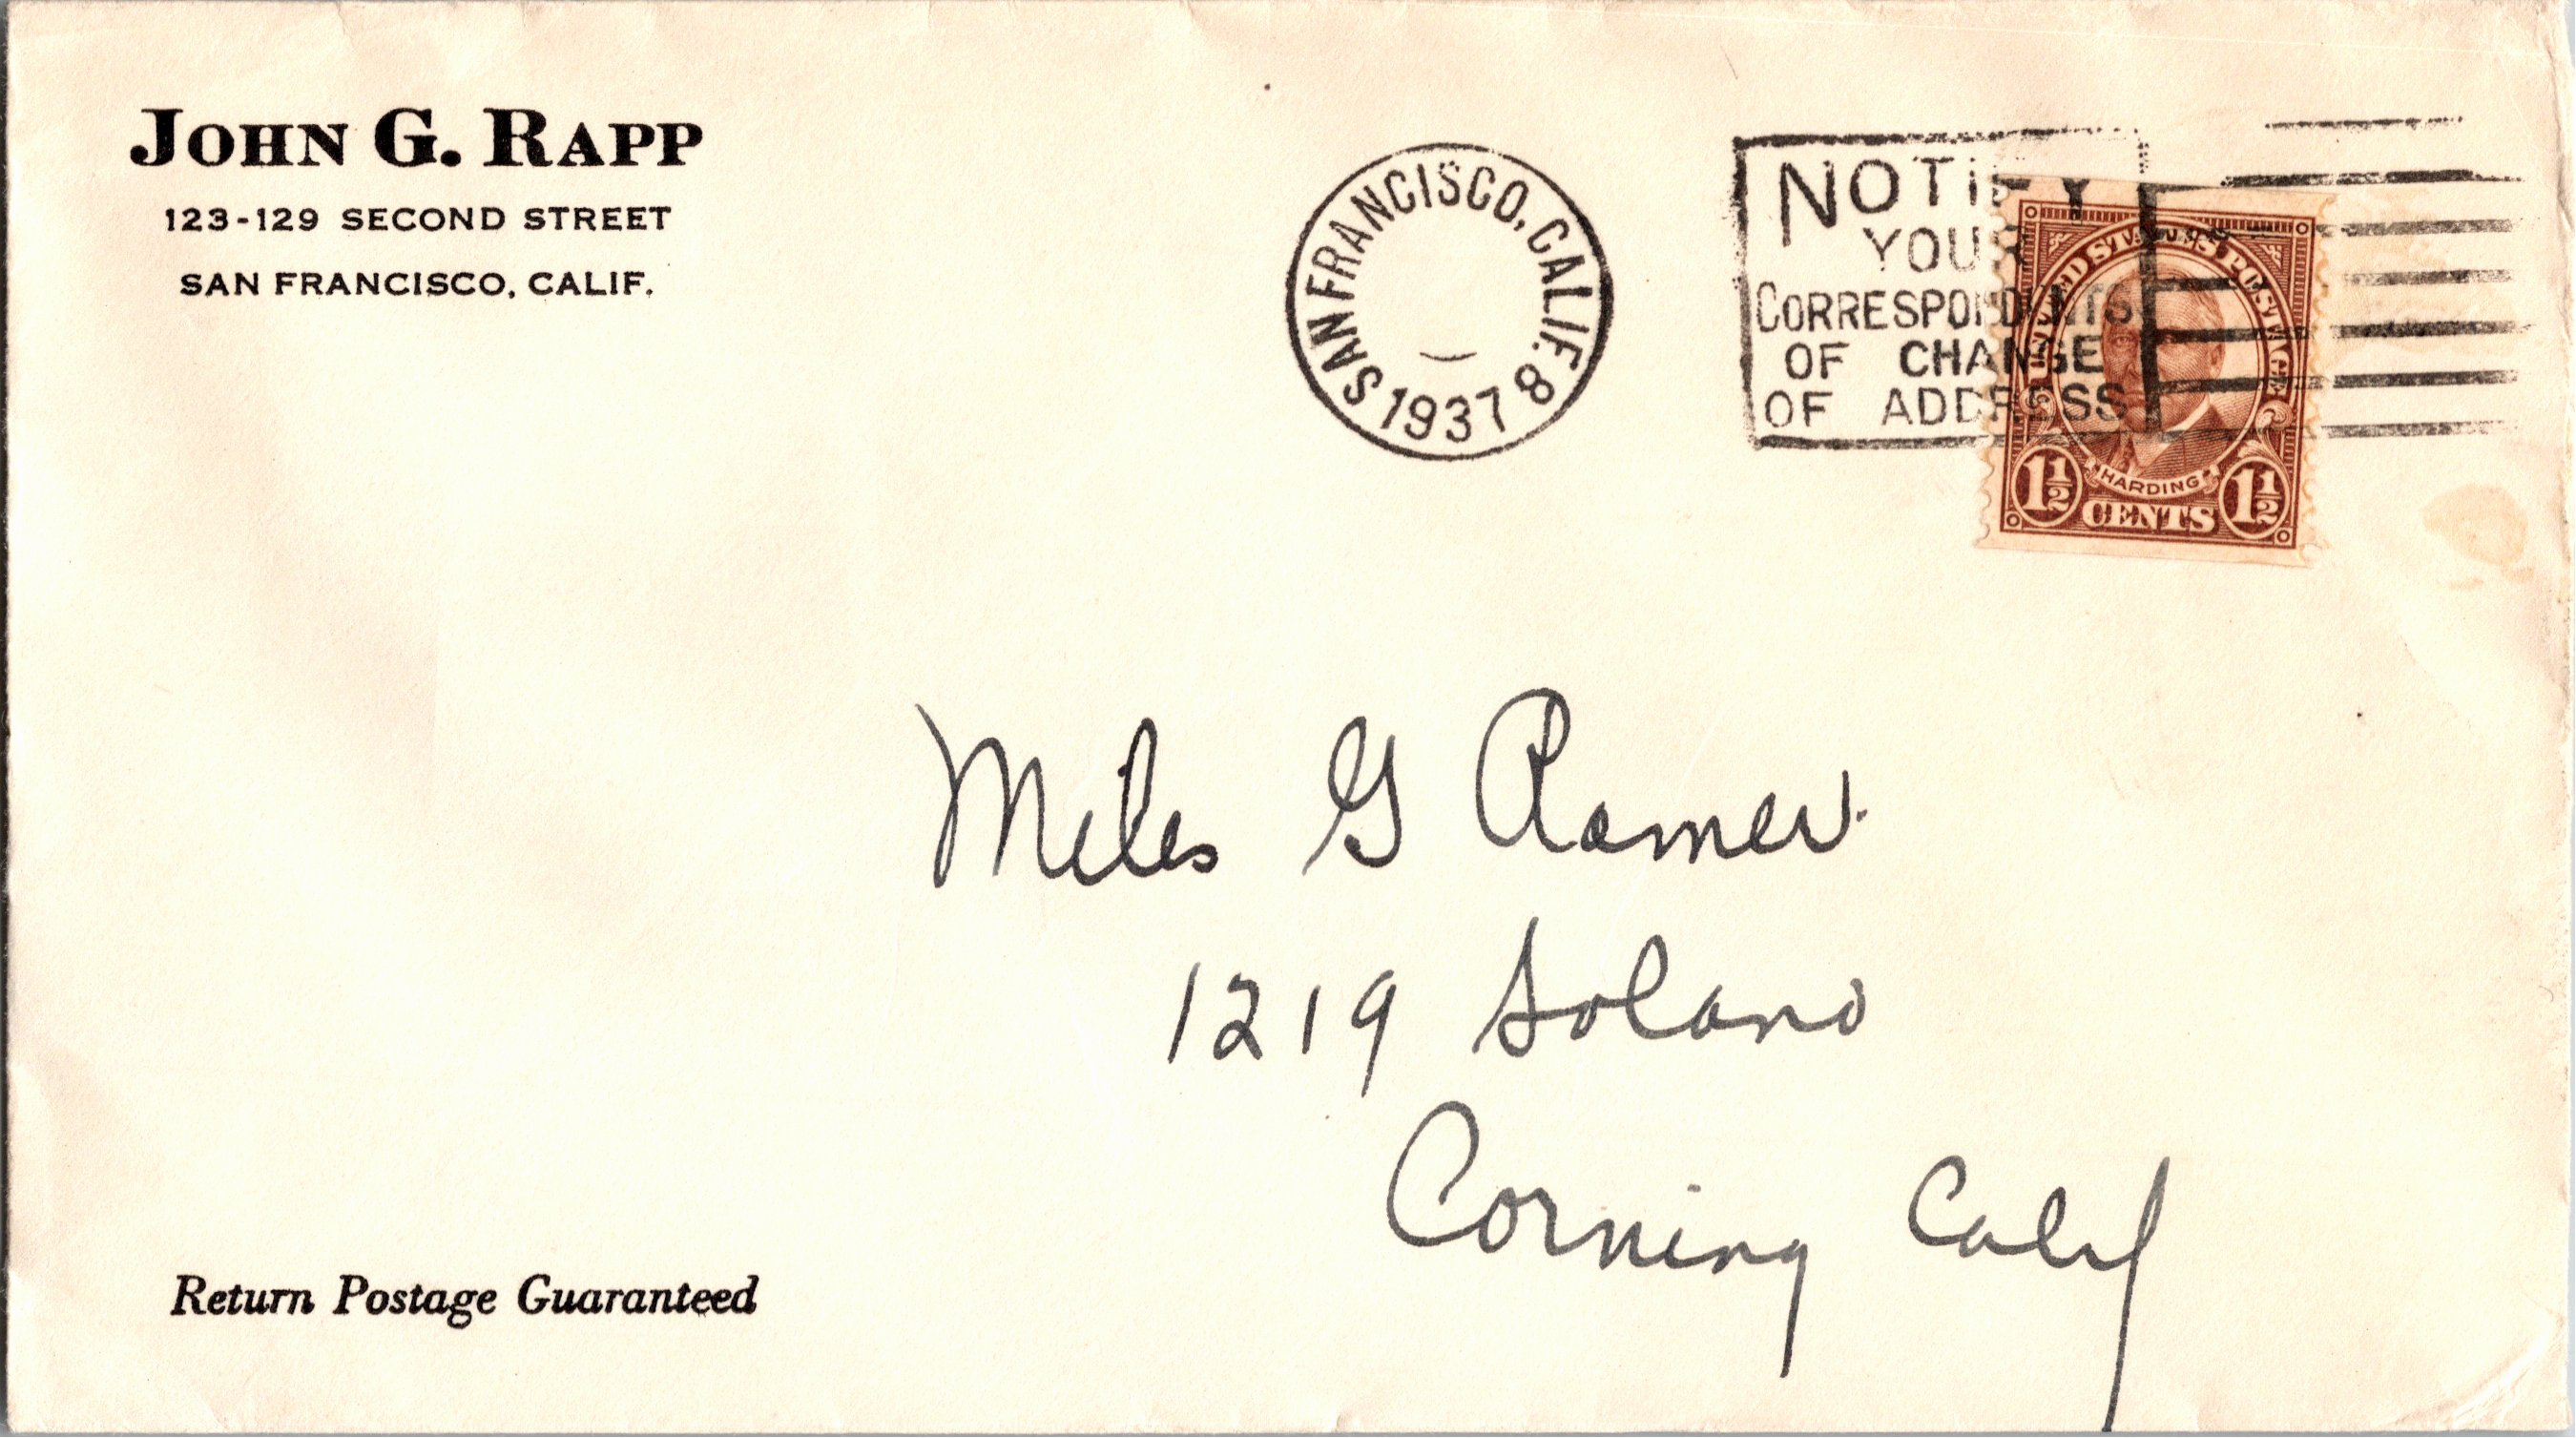 JOHN G. RAPP
123-129 SECOND STREET
SAN FRANCISCO, CALIF.
SAN FRANCISCO, CALIF. 8
1937
NOTIFY
YOUR
CORRESPONDENTS
OF CHANGE
OF ADDRESS
UNITED STATES POSTAGE
HARDING
1½ CENTS 1½
Miles G Ramer
1219 Solano
Corning Calif
Return Postage Guaranteed